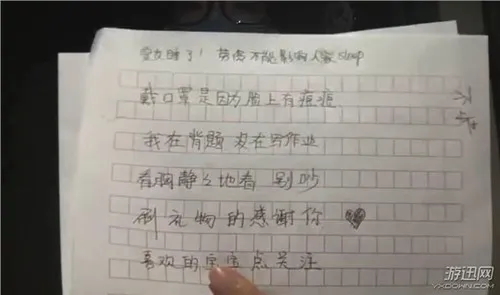 室友睡了! 劳资不能影响人家 sleep
戴口罩是因为脸上有痘痘
我在背题 没在写作业
看胸静々地看 别吵
刷礼物的感谢你
喜欢的宝宝点关注
游迅网
YXDOWN.COM